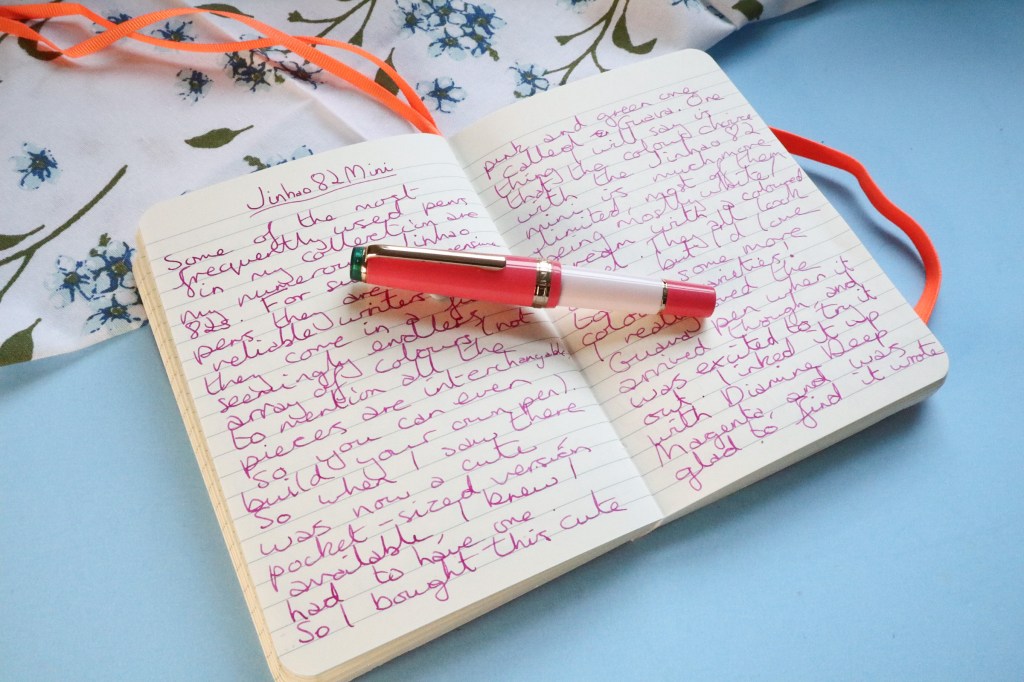 Jinhao 82 Mini
Some of the most
frequently used pens
in my collection are
my numerous Jinhao
82s. For
pens they are
reliable writers
they come in a
seemingly endless
array of colours (not
to mention all the
pieces are interchangable
so you can even
build your own pen).
So when I saw there
was now a cute
pocket-sized version
available, I knew I
had to have one.
So I bought this cute
pink and green one
called Guava. One
thing I will say is
that the colour choice
with the Jinhao 82
mini is much more
limited, most of them
being mostly white/
cream with a coloured
They do look
but I'd love
some more
colour varieties.
I really the
Guava pen when it
arrived though and
was excited to try it
out. I inked it up
with Diamine Deep
Magenta, and was
glad to find it wrote